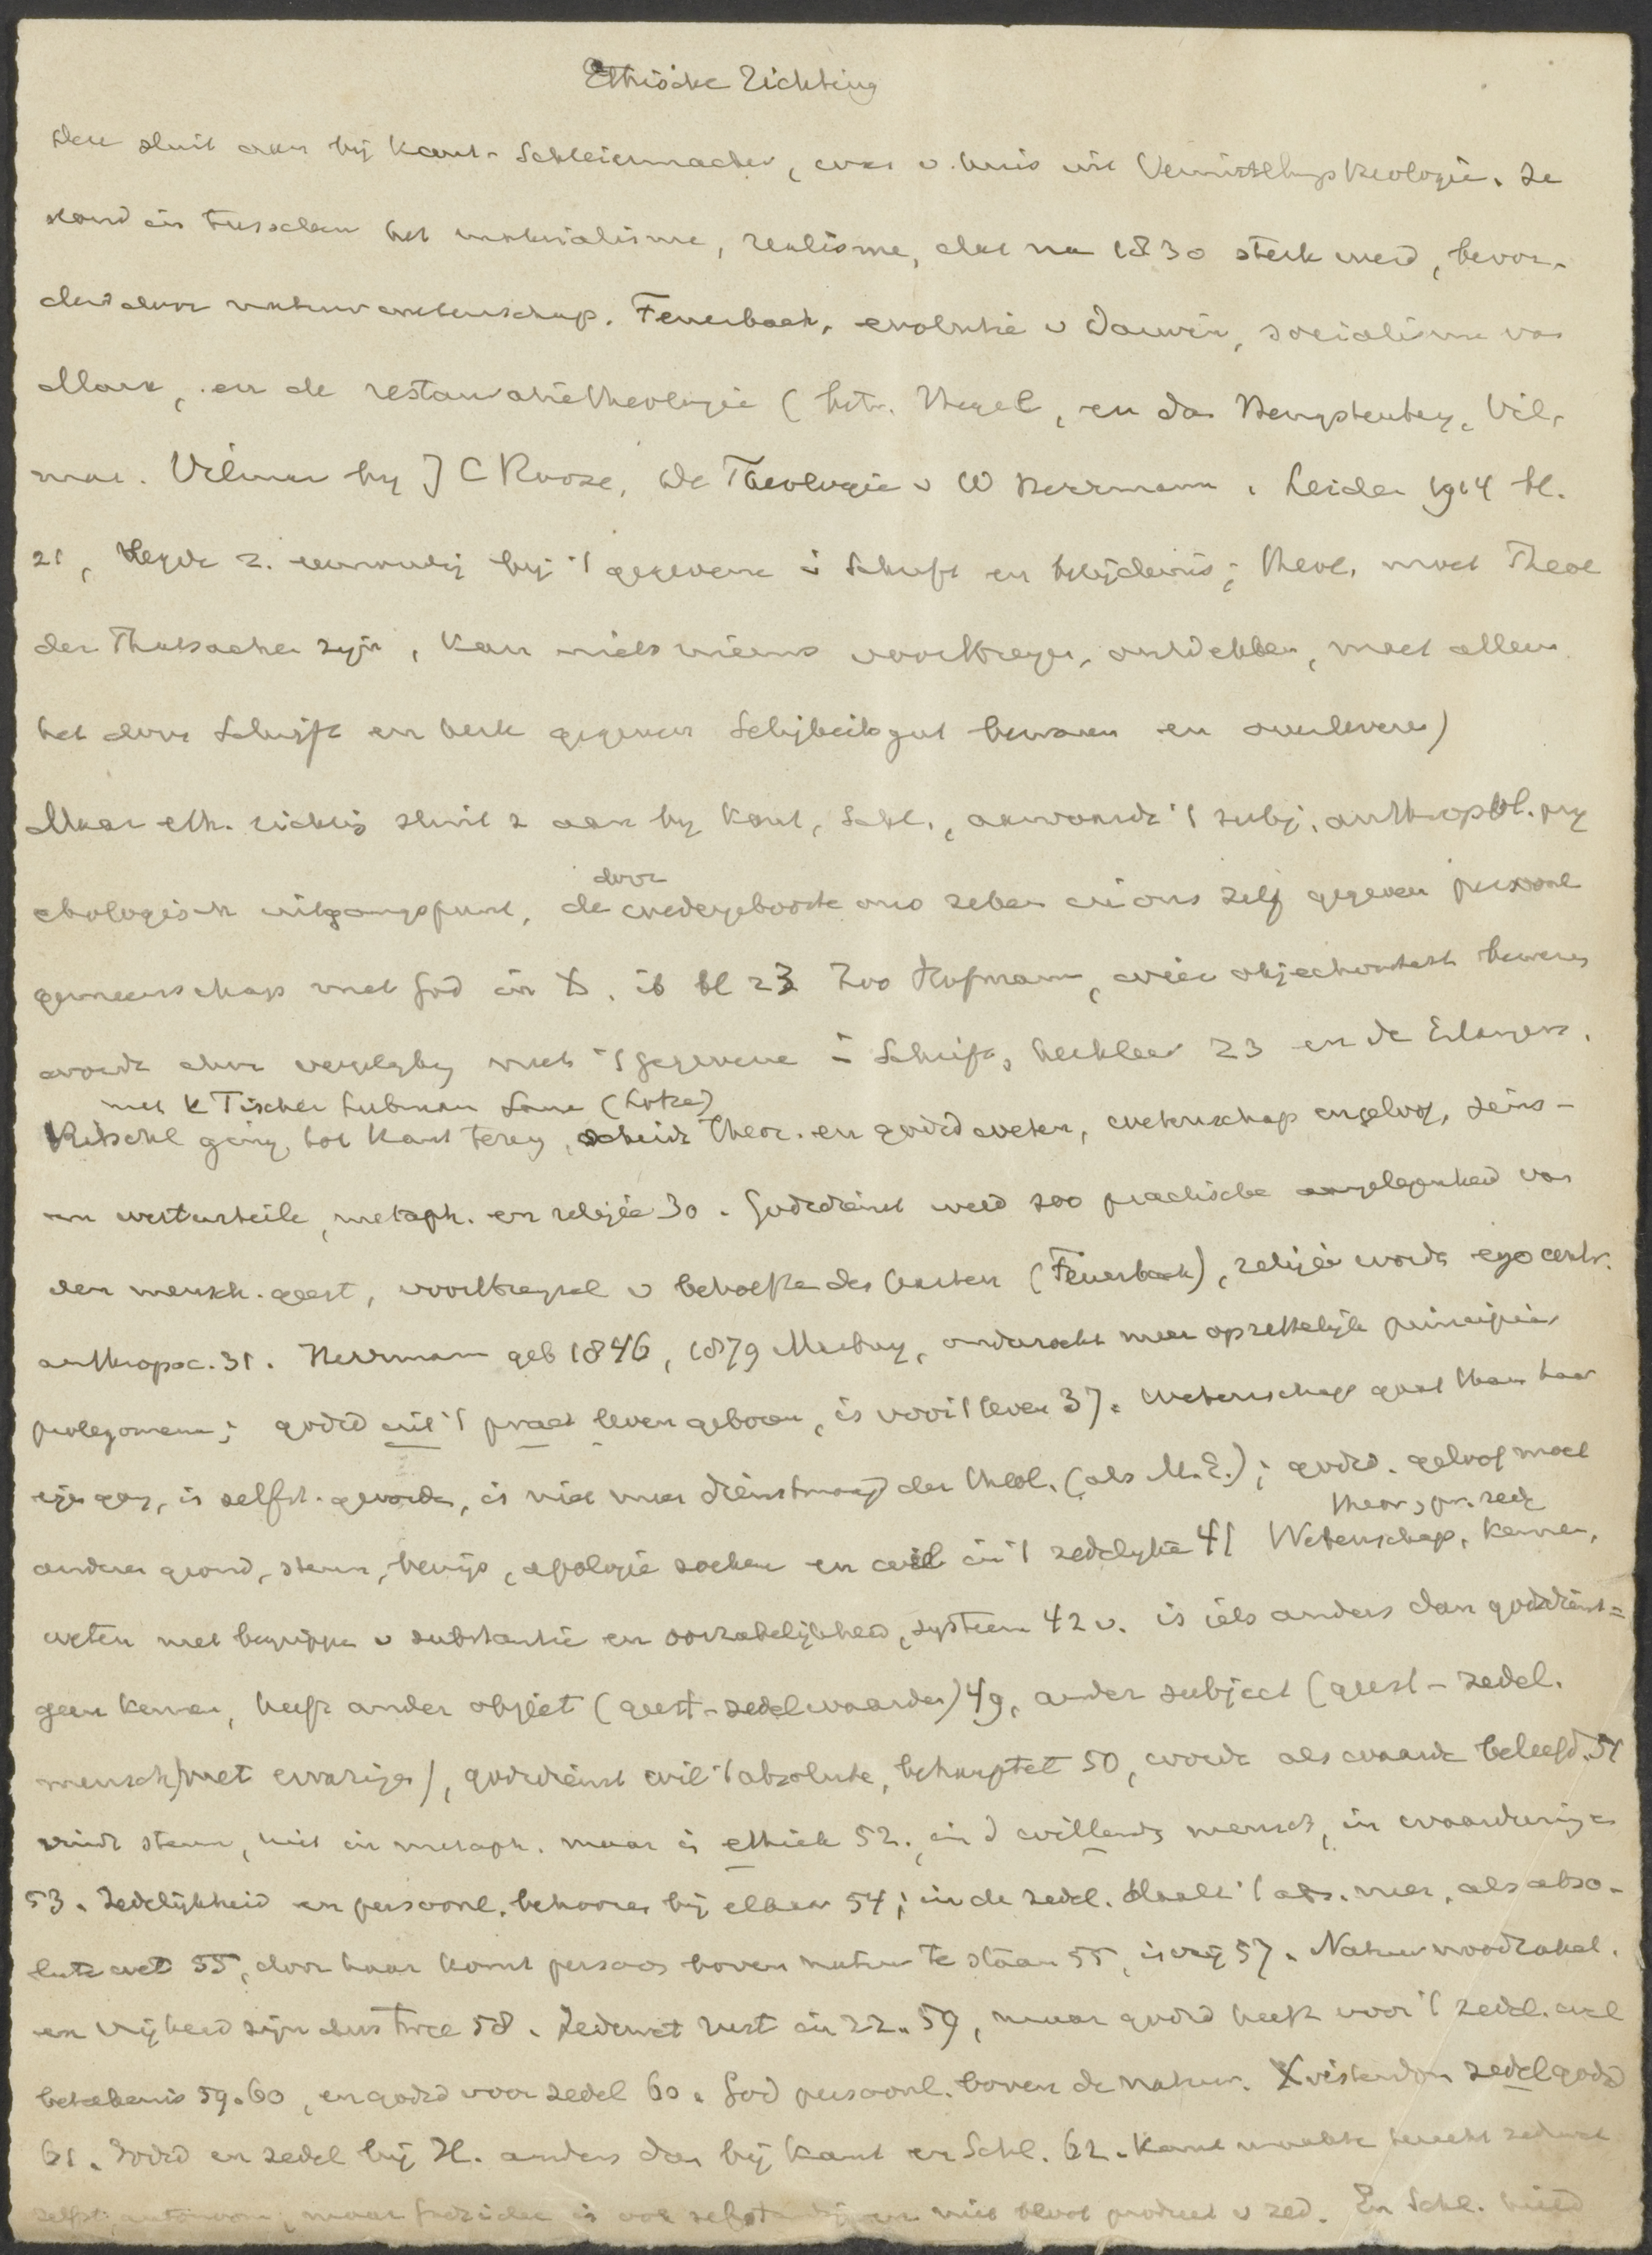 Ethische Richting
Deze sluit aan bij Kant-Schleiermacher, was v. huis uit Vermittlungstheologie. Ze
stond in tusschen het materialisme, realisme, dat na 1830 sterk werd, bevor-
derd door natuurwetenschap. Feuerbach, evolutie v Darwin, socialisme van
Marx, en de restauratietheologie (betr. Hegel, en dan Hengstenberg, Vil-
mar. Vilmar bij J C Roose, De Theologie v W Herrmann, Leiden 1914 bl.
21, legde z. eenvoudig bij 't gegevene i Schrift en belijdenis; theol. moet Theol
der Thatsachen zijn, kan niets nieuws voortbrengen, ontdekken, moet alleen
het door Schrift en kerk gegeven Seligkeitsgut bewaren en overleveren)
Maar eth. richting sluit z aan bij Kant, Schl., aanvaardt 't subj. anthropol. psy
chologisch uitgangspunt, de door wedergeboorte ons zelven in ons zelf gegeven persoonl
gemeenschap met God in X. ib bl 23 Zoo Hofmann, wier objectiviteit bewezen
wordt door vergelijking met 't gegevene i Schrift, kerkleer 23 en de Erlangers.
met K Fischer Liebmann Lange (Lotze)
Ritschl ging tot Kant terug, scheidt theor. en godsd weten, wetenschap en geloof, Seins-
en werturteile, metaph. en religie 30. Godsdienst werd zoo practische aangelegenheid van
den mensch. geest, voortbrengsel v behoefte des harten (Feuerbach), religie wordt egocentr.
anthropoc. 31. Herrmann geb 1846, 1879 Marburg, onderzocht meer opzettelijk principiën
prolegomena; godsd uit 't pract leven geboren, is voor 't leven 37. Wetenschap gaat thans haar
eigen gang, is zelfst. geworden, is niet meer dienstmaagd der theol. (als M.E.); godsd. geloof moet
anderen grond, steun, bewijs, apologie zoeken en wel in 't zedelijke 41 Wetenschap, kennen,
theor, pr. zed
weten met begrippen v substantie en oorzakelijkheid, systeem 42 v. is iets anders dan godsdienst=
geen kennen, heeft ander object (geest-zedel waarden) 49, ander subject (geest-zedel.
mensch met ervaringen), godsdienst wil 't absolute, behauptet 50, wordt als waarde beleefd. 51
vindt steun, niet in metaph. maar in ethiek 52. in d willenden mensch, in waardeeringen
53. Zedelijkheid en persoonl. behooren bij elkaar 54; in de zedel. daalt 't abs. neer, als abso-
lute wet 55, door haar komt persoon boven natuur te staan 55, is vrij 57. Natuurnoodzakel.
en vrijheid zijn dus twee 58. Zedewet rust in zz. 59, maar godsd heeft voor 't zedel. wel
beteekenis 59.60, en godsd voor zedel 60. God persoonl. boven de natuur. Xristendom zedel godsd
61. Godsd en zedel bij H. anders dan bij Kant en Schl. 62. Kant maakte terecht zedewet
zelfst. autonoom, maar godsdienst is ook zelfstandig en niet bloot product v zed. En Schl. hield